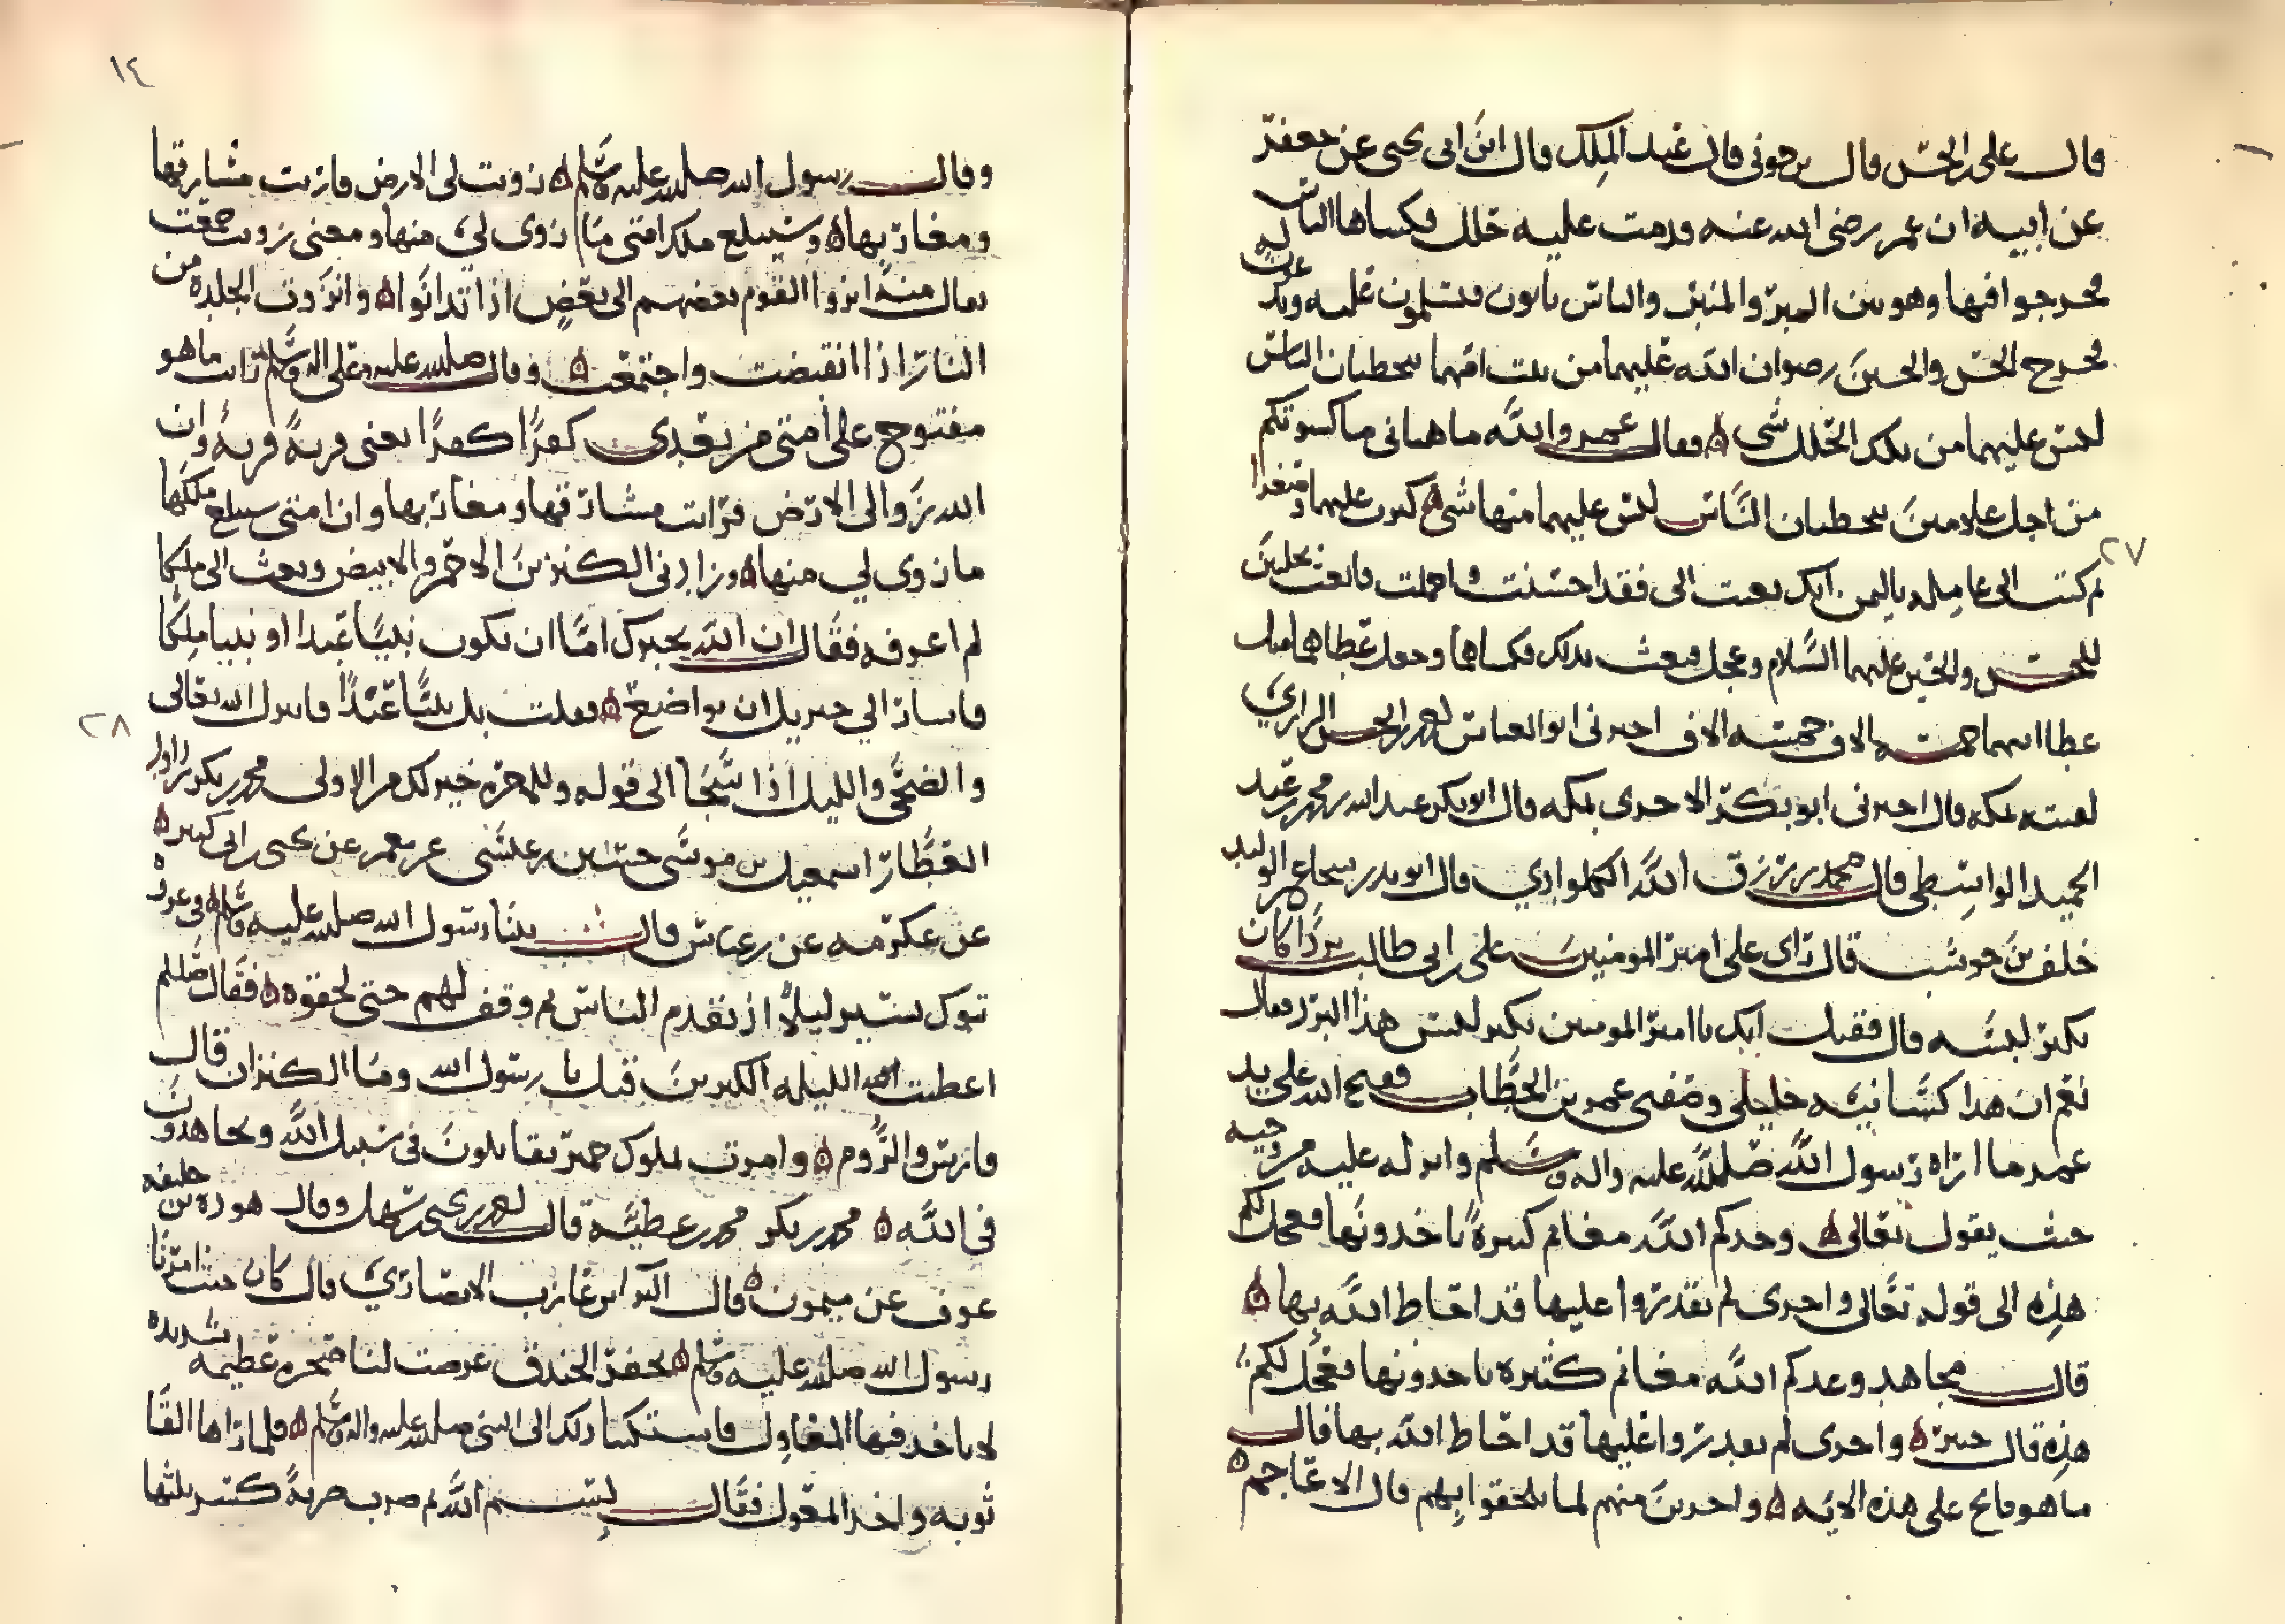 قال علي بن الحسن قال بن حوني قال عبد الملك قال ابن ابي يحيى عن جعفر
عن ابيه ان عمر رضي الله عنه قدمت عليه حلل فكساها الناس
فخرجوا فيها وهو بين القبر والمنبر والناس ياتون فيسلمون عليه ويدعون له
فخرج الحسن والحسين رضوان الله عليهما من بيت امهما يتخطيان الناس
ليس عليهما من تلك الحلل شي فقال عمر والله ما هناني ما كسوتكم
من اجل غلامين يتخطيان الناس ليس عليهما منها شي كبرت عليهما وصغرا
ثم كتب الى عامله باليمن انك بعثت الي فقد احسنت واجملت فابعث بحلتين
للحسن والحسين عليهما السلام وعجل فبعث بذلك فكساهما وجعل عطاهما مثل
عطا ابيهما خمسة الاف خمسة الاف اخبرني ابو العباس احمد بن الحسن الرازي
لقيته بمكة قال اخبرني ابو بكر الاجري بمكة قال ابو بكر عبد الله بن محمد بن عبد
الحميد الواسطي قال محمد بن رزق الله الكلواذي قال ابو بدر شجاع بن الوليد عن
خلف بن حوشب قال راى على امير المومنين علي بن ابي طالب بردا كان
يكثر لبسه قال فقيل انك يا امير المومنين تكثر لبس هذا البرد فقال
نعم ان هذا كسانيه خليلي وصفيي عمر بن الخطاب ففتح الله على يد
عمر ما اراه رسول الله صلى الله عليه واله وسلم وانزله عليه من وحيه
حيث يقول تعالى وعدكم الله مغانم كثيرة تاخذونها فعجل لكم
هذه الى قوله تعالى واخرى لم تقدروا عليها قد احاط الله بها
قال مجاهد وعدكم الله مغانم كثيرة تاخذونها فعجل لكم
هذه قال خيبر واخرى لم تقدروا عليها قد احاط الله بها قال
ما هو فاتح على هذه الامة واخرين منهم لما يلحقوا بهم قال الاعاجم
٢٧
١٤
وقال رسول الله صلى الله عليه وسلم زويت لي الارض فاريت مشارقها
ومغاربها وسيبلغ ملك امتي ما زوي لي منها ومعنى زويت جمعت
يقال منه انزوا القوم بعضهم الى بعض اذا تدانوا وانزوت الجلدة من
النار اذا انقبضت واجتمعت وقال صلى الله عليه وعلى اله وسلم رايت ما هو
مفتوح على امتي من بعدي كفرا كفرا يعني قرية قرية وان
الله زوا لي الارض فرايت مشارقها ومغاربها وان امتي سيبلغ ملكها
ما زوي لي منها وزادني الكنزين الاحمر والابيض وبعث الي ملكا
لم اعرفه فقال ان الله يخيرك اما ان تكون نبيا عبدا او نبيا ملكا
فاشار الي جبريل ان تواضع فقلت بل نبيا عبدا فانزل الله تعالى
والضحى والليل اذا سجا الى قوله وللاخرة خير لك من الاولى محمد بن بكر
العطار اسمعيل بن موسى حسين بن عيسى عن معمر عن يحيى بن ابي كثير
عن عكرمه عن بن عباس قال بينا رسول الله صلى الله عليه وسلم في غزوة
تبوك يسير ليلا اذ تقدم الناس ثم وقف لهم حتى لحقوه فقال صلى الله عليه وسلم
اعطيت هذه الليلة الكنزين قيل يا رسول الله وما الكنزان قال
فارس والروم وامددت بملوك حمير يقاتلون في سبيل الله ويجاهدون
في الله محمد بن بكر محمد بن عطية قال احمد بن يحيى بن سهل وقال هوذة بن خليفه
عوف عن ميمون قال البرا بن عازب الانصاري قال كان حيث امرنا
رسول الله صلى الله عليه وسلم بحفر الخندق عرضت لنا صخرة عظيمه شديده
لا ياخذ فيها المعاول فاشتكينا ذلك الى النبي صلى الله عليه واله وسلم فلما راها القا
ثوبه واخذ المعول فقال بسم الله ثم ضرب ضربة كسر ثلثها
٢٨